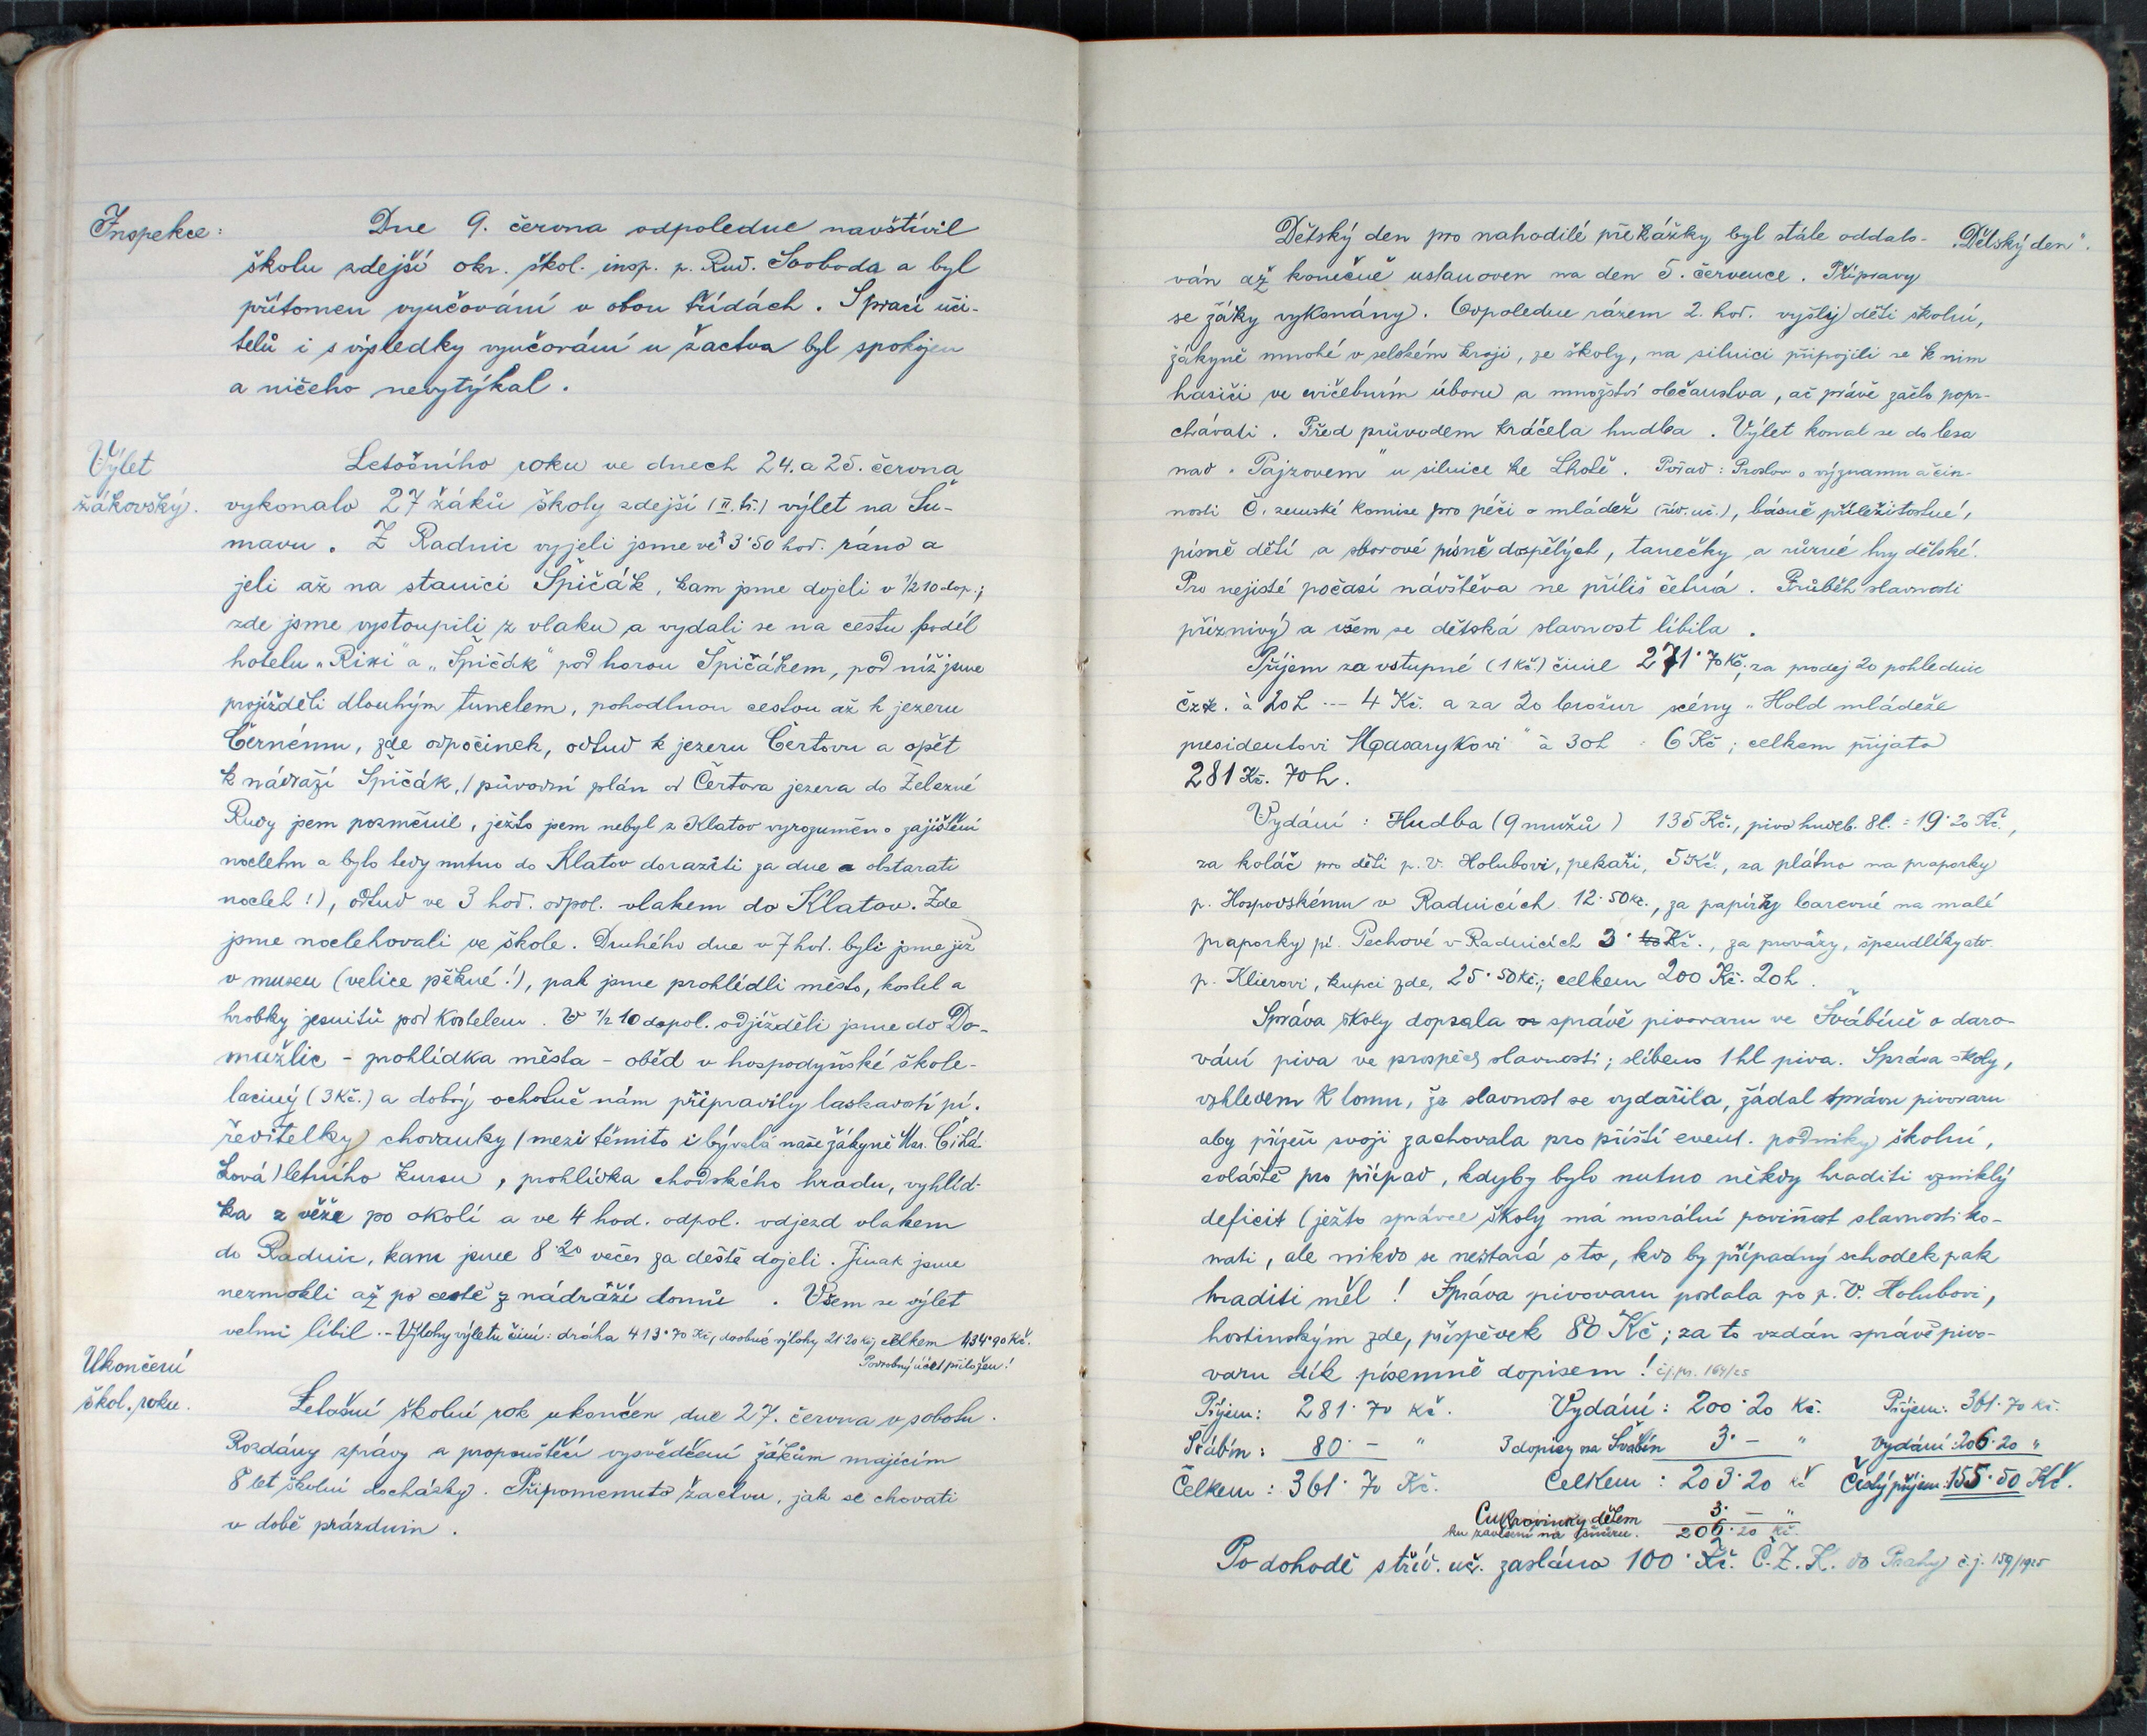 Inspekce: Dne 9. června odpoledne navštívil
školu zdejší okr. škol. insp. p. Rud. Svoboda a byl
přítomen vyučování v obou třídách. S prací uči-
telů i s výsledky vyučování u žactva byl spokojen
a ničeho nevytýkal.
Výlet
žákovský.
Letočního roku ve dnech 24. a 25. června
vykonalo 27 žáků školy zdejší (II. tř.) výlet na Šu-
mavu. Z Radnic vyjeli jsme ve 3·50 hod. ráno a
jeli až na stanici Špičák, kam jsme dojeli v 1/2 10 dop.;
zde jsme vystoupili z vlaku a vydali se na cestu podél
hotelu „Rixi" a „Špičák" pod horou Špičákem, pod níž jsme
projížděli dlouhým tunelem, pohodlnou cestou až k jezeru
Černému, zde odpočinek, odtud k jezeru Čertovu a opět
k nádraží Špičák, (původní plán od Čertova jezera do Železné
Rudy jsem pozměnil, ježto jsem nebyl z Klatov vyrozuměn o zajištění
noclehu a bylo tedy nutno do Klatov doraziti za dne a obstarati
nocleh!), odtud ve 3 hod. odpol. vlakem do Klatov. Zde
jsme noclehovali ve škole. Druhého dne v 7 hod. byli jsme již
v museu (velice pěkné!), pak jsme prohlídli město, kostel a
hrobky jesuitů pod kostelem. V 1/2 10 dopol. odjížděli jsme do Do-
mažlic - prohlídka města - oběd v hospodyňské škole-
laciný (3 Kč.) a dobrý ochotně nám připravily laskavostí pí.
ředitelky chovanky (mezi těmito i bývalá naše žákyně Mar. Cibul-
ková) letního kursu, prohlídka chodského hradu, vyhlíd-
ka z věže po okolí a ve 4 hod. odpol. odjezd vlakem
do Radnic, kam jsme 8·20 večer za deště dojeli. Jinak jsme
nezmokli až po cestě z nádraží domů. Všem se výlet
velmi líbil. - Výlohy výletu činí: dráha 413·70 Kč, drobné výlohy 21·20 Kč, celkem 434·90 Kč.
Podrobný účet přiložen!
Ukončení
škol. roku.
Letošní školní rok ukončen dne 27. června v sobotu.
Rozdány zprávy a propouštěcí vysvědčení žákům majícím
8 let školní docházky. Připomenuto žactvu, jak se chovati
v době prázdnin.
Dětský den pro nahodilé překážky byl stále oddalo- „Dětský den".
ván až konečně ustanoven na den 5. července. Přípravy
se žáky vykonány. Odpoledne rázem 2. hod. vyšly děti školní,
žákyně mnohé v selském kroji, ze školy, na silnici připojili se k nim
hasiči ve cvičebním úboru a množství občanstva, ač právě začlo popr-
chávati. Před průvodem kráčela hudba. Výlet konal se do lesa
nad „Pajzovem" u silnice ke Lhotě. Pořad: Proslov o významu a čin-
nosti Č. zemské komise pro péči o mládež (říd. uč.), básně příležitostné,
písně dětí a sborové písně dospělých, tanečky a různé hry dětské.
Pro nejisté počasí návštěva ne příliš četná. Průběh slavnosti
příznivý a všem se dětská slavnost líbila.
Příjem za vstupné (1 Kč) činil 271·70 Kč, za prodej 20 pohlednic
čzk. à 20 h --- 4 Kč. a za 20 brožur scény „Hold mládeže
presidentovi Masarykovi" à 30 h = 6 Kč; celkem přijato
281 Kč. 70 h.
Vydání: Hudba (9 mužů) 135 Kč., pivo hudeb. 8 l. = 19·20 Kč.,
za koláč pro děti p. V. Holubovi, pekaři, 5 Kč., za plátno na praporky
p. Hospodskému v Radnicích 12·50 Kč., za papírky barevné na malé
praporky pí. Pechové v Radnicích 3· Kč., za provázky, špendlíky atd.
p. Klierovi, kupci zde, 25·50 Kč.; celkem 200 Kč. 20 h.
Správa školy dopsala správě pivovaru ve Švábíně o daro-
vání piva ve prospěch slavnosti; slíbeno 1 hl piva. Správa školy,
vzhledem k tomu, že slavnost se vydařila, žádal správu pivovaru
aby přízeň svoji zachovala pro příští event. podniky školní,
zvláště pro případ, kdyby bylo nutno někdy hraditi vzniklý
deficit (ježto správce školy má morální povinost slavnosti ko-
nati, ale nikdo se nestará o to, kdo by případný schodek pak
hraditi měl! Správa pivovaru poslala po p. V. Holubovi,
hostinským zde, příspěvek 80 Kč; za to vzdán správě pivo-
varu dík písemně dopisem! čj. 164/25
Příjem: 281·70 Kč. Vydání: 200·20 Kč. Příjem: 361·70 Kč.
Švábín: 80·- " 3 dopisy na Švábín 3·- " Vydání: 206·20 "
Celkem: 361·70 Kč. Celkem: 203·20 Kč Čistý příjem: 155·50 Kč.
Cukrovinky dětem 3·- "
ku zavěšení na šňůru. 206·20 Kč.
Po dohodě s říd. uč. zasláno 100· Kč. Č.Z.K. do Prahy č.j. 159/1925